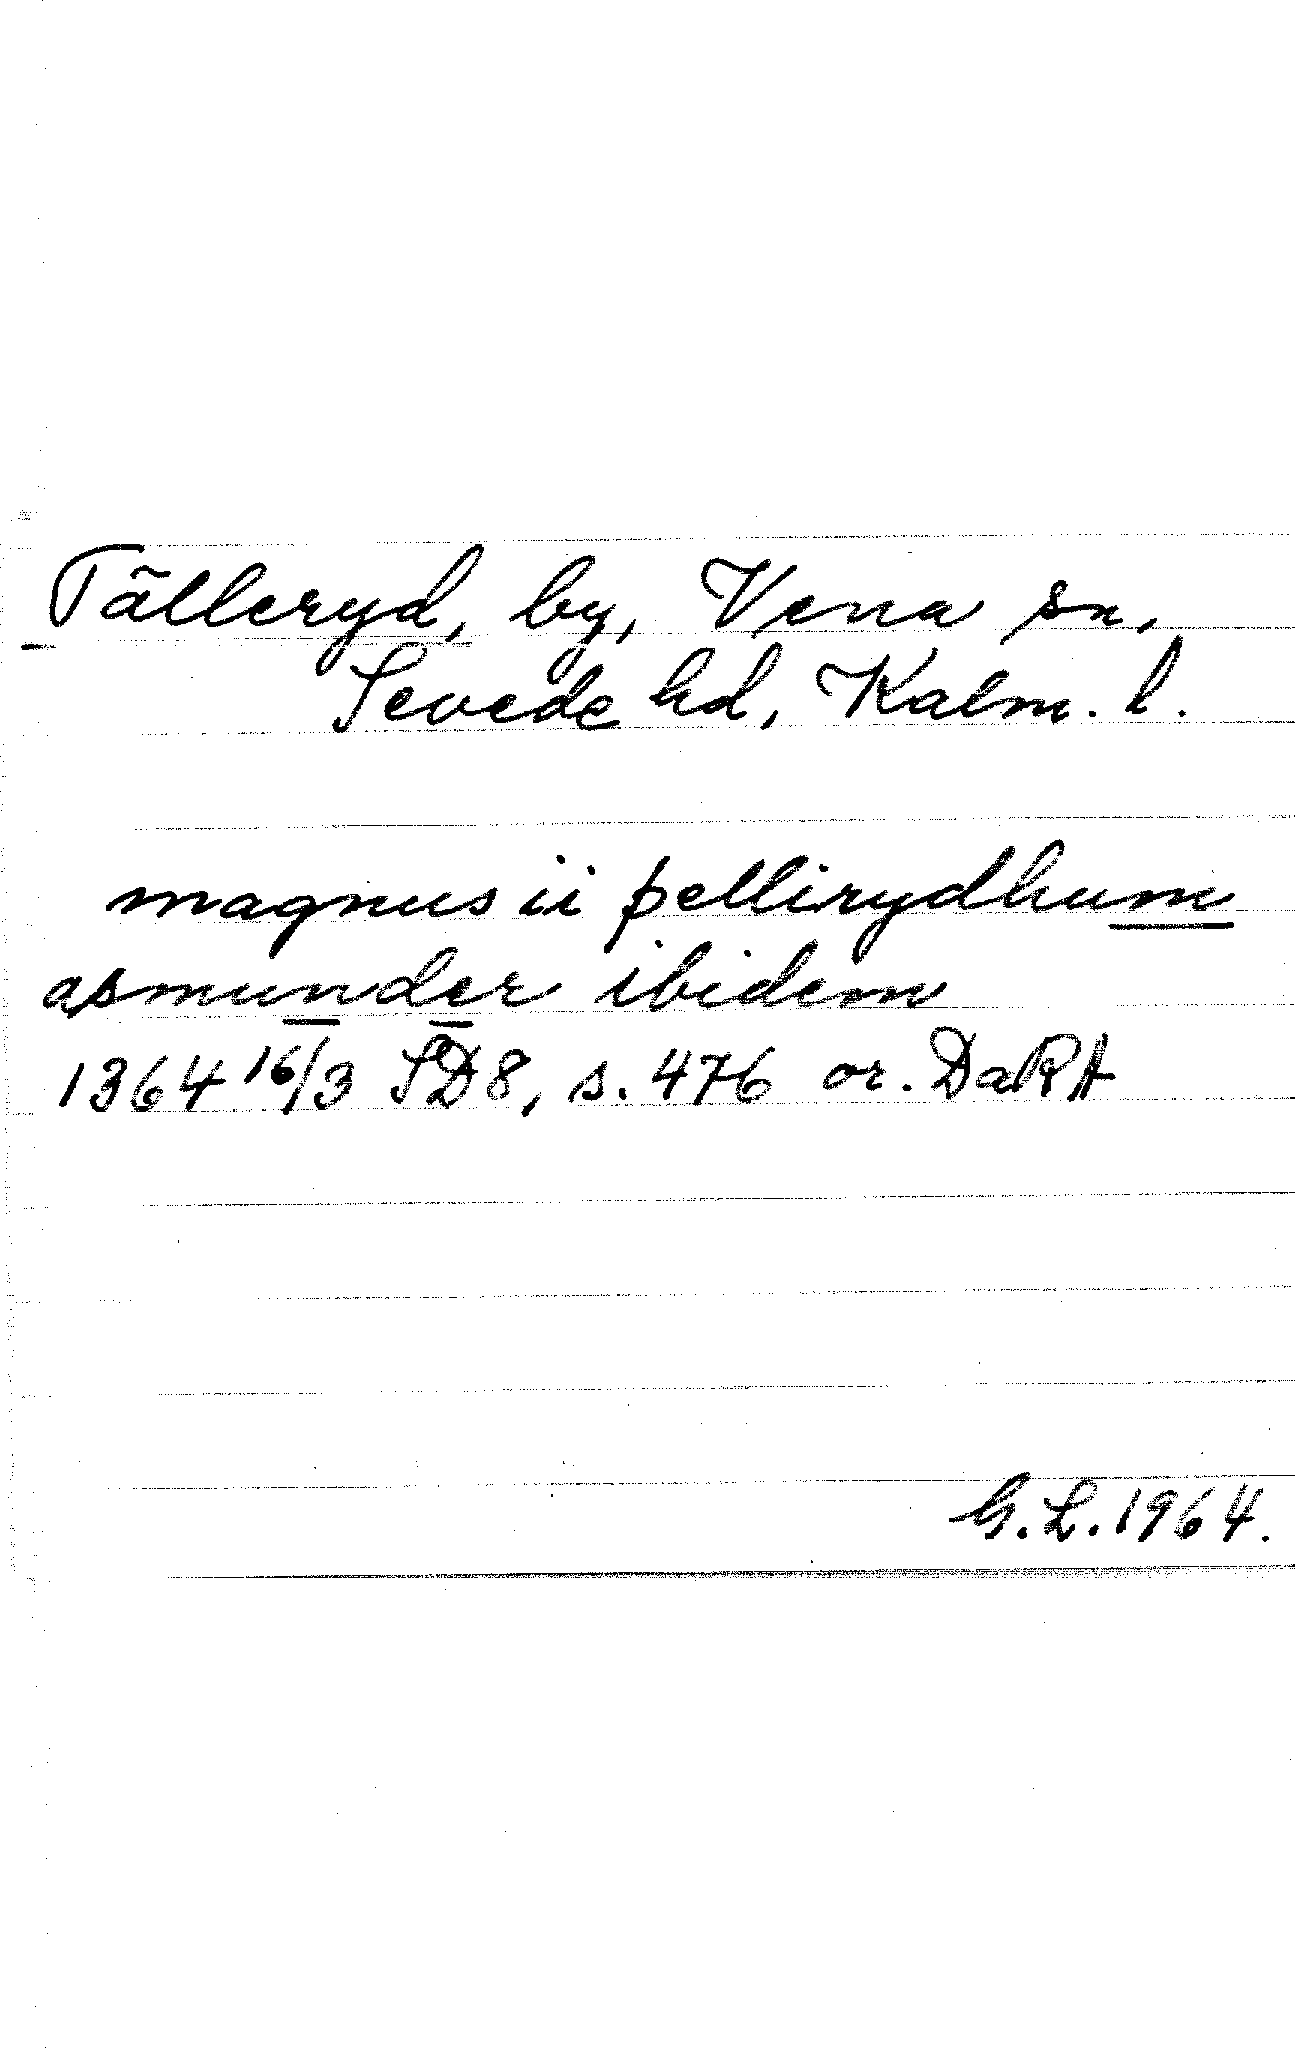 Tälleryd, by, Vena sn,
Sevede hd, Kalm. l.
magnus ii þellirydhum
asmunder ibidem
1364 16/3 SD 8, s. 476 or. DaRA
G.L. 1964.